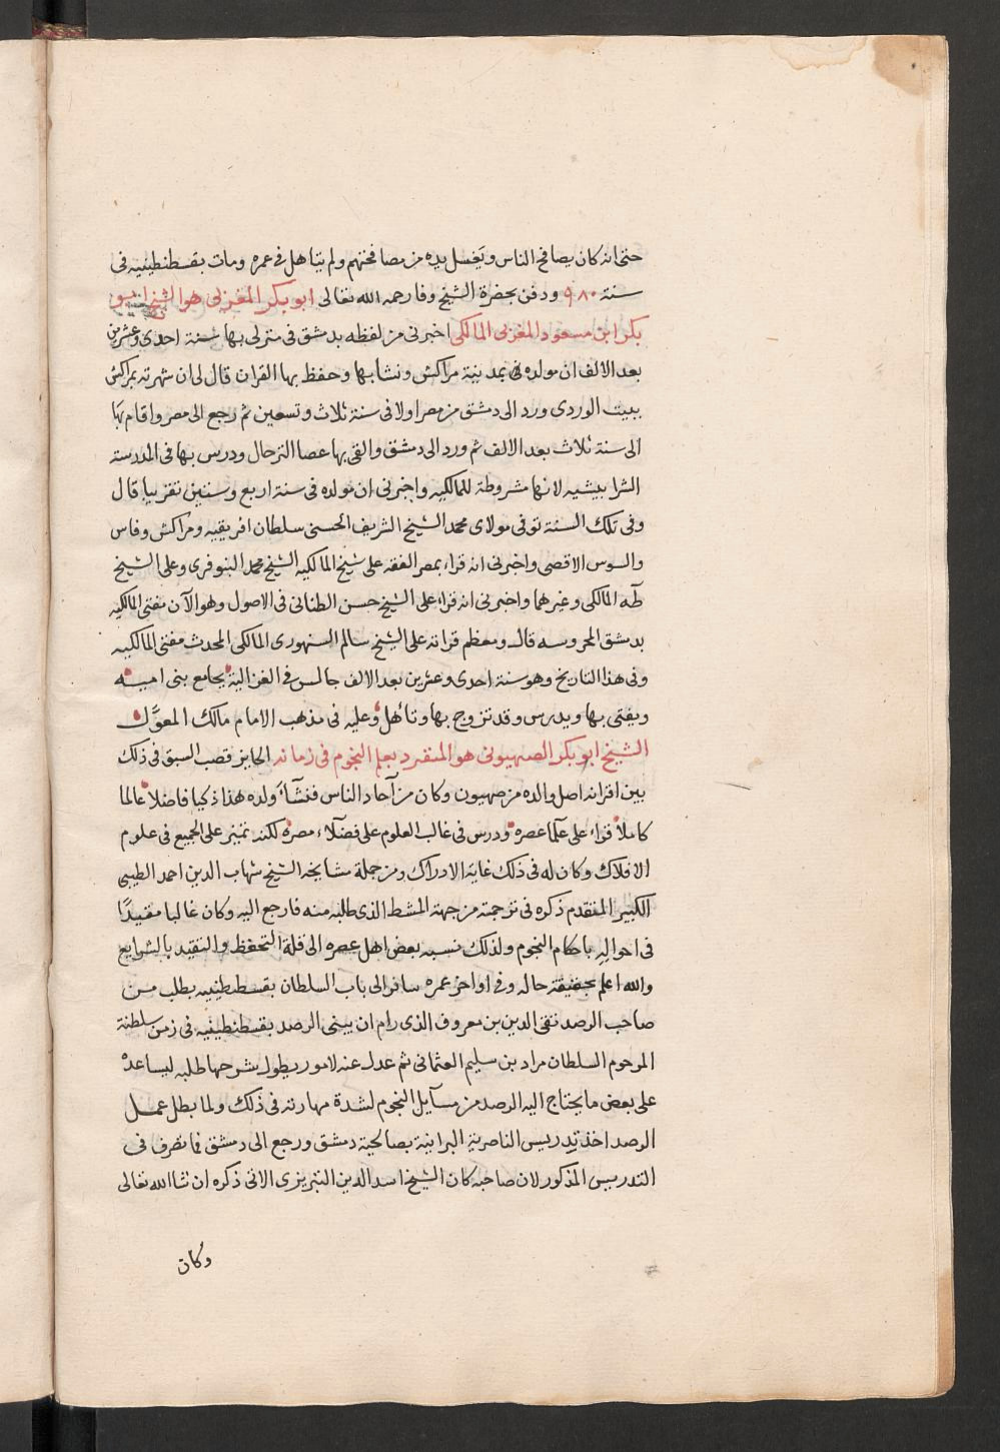 حتى انه كان يصافح الناس ويغسل يده من مصافحتهم ولم يتاهل في عمره ومات بقسطنطينيه في
سنة ٩٨٠ ودفن بحضرة الشيخ وفا رحمه الله تعالى ابو بكر المغربي هو الشيخ ابو
بكر ابن مسعود المغربي المالكي اخبرني من لفظه بدمشق في منزلى بها سنة احدى وعشرين
بعد الالف ان مولده في بمدينة مراكش ونشا بها وحفظ بها القران قال لى ان شهرته بمراكش
ببيت الوردى ورد الى دمشق من مصر اولا فى سنة ثلاث وتسعين ثم رجع الى مصر واقام بها
الى سنة ثلاث بعد الالف ثم ورد الى دمشق والقى بها عصا الترحال ودرس بها فى المدرسة
الشرابيشيه لانها مشروطة للمالكيه واخبرني ان مولده فى سنة اربع وستين تقريبا قال
وفى تلك السنة توفى مولاى محمد الشيخ الشريف الحسنى سلطان افريقيه ومراكش وفاس
والسوس الاقصى واخبرنى انه قراء بمصر الفقه على شيخ المالكيه الشيخ محمد البنوفرى وعلى الشيخ
طه المالكى وغيرهما واخبرنى انه قراء على الشيخ حسن الطنانى فى الاصول وهو الآن مفتى المالكيه
بدمشق المحروسه قال ومعظم قراته على الشيخ سالم السنهورى المالكى المحدث مفتى المالكيه
وفى هذا التاريخ وهو سنة احدى وعشرين بعد الالف جالس فى الغزالية بجامع بنى اميه
ويفتى بها ويدرس وقد تزوج بها وتاهل وعليه فى مذهب الامام مالك المعوّل
الشيخ ابو بكر الصهيونى هو المنفرد بعلم النجوم فى زمانه الحايز قصب السبق فى ذلك
بين اقرانه اصل والده من صهيون وكان من آحاد الناس فنشأ ولده هذا ذكيا فاضلا عالما
كاملا قراء على علما عصره ودرس فى غالب العلوم على فضلاء مصره لكنه تميز على الجميع فى علوم
الافلاك وكان له فى ذلك غاية الادراك ومن جملة مشايخه الشيخ شهاب الدين احمد الطيبى
الكبير المتقدم ذكره فى ترجمته من جهة المشط الذى طلبه منه فارجع اليه وكان غالبا مقيدًا
فى احواله باحكام النجوم ولذلك نسبه بعض اهل عصره الى قلة التحفظ والتقيد بالشرايع
والله اعلم بحقيقة حاله وفى اواخر عمره سافر الى باب السلطان بقسطنطينيه بطلب من
صاحب الرصد تقى الدين بن معروف الذى رام ان يبنى الرصد بقسطنطينيه فى زمن سلطنة
المرحوم السلطان مراد بن سليم العثمانى ثم عدل عنه لامور يطول شرحها طلبه ليساعده
على بعض ما يحتاج اليه الرصد من مسايل النجوم لشدة مهارته فى ذلك ولما بطل عمل
الرصد اخذ تدريس الناصرية البرانية بصالحية دمشق ورجع الى دمشق فما تصرف فى
التدريس المذكور لان صاحبه كان الشيخ اسد الدين التبريزى الاتى ذكره ان شا الله تعالى
وكان